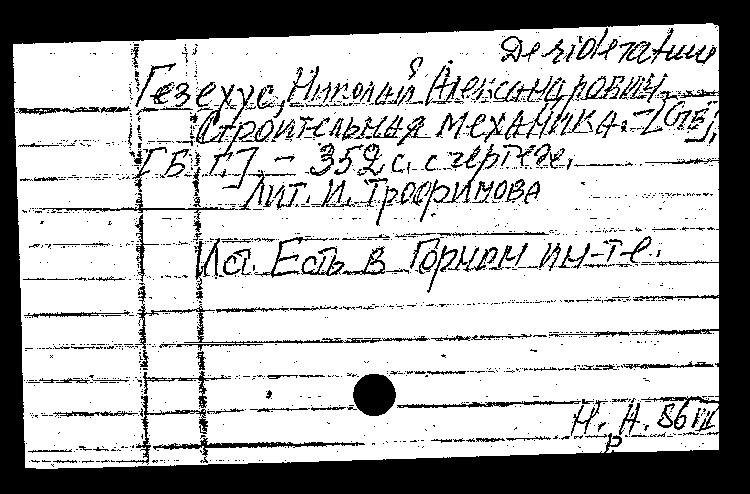 Desideratum
Гезехус, Николай Александрович.
Строительная механика. - [СПБ],
[Б. Г.]. - 352 с. с чертеж.
Лит. И. Трофимова
Ист. Есть в Горном ин-т-е.
Н. А. 86
р